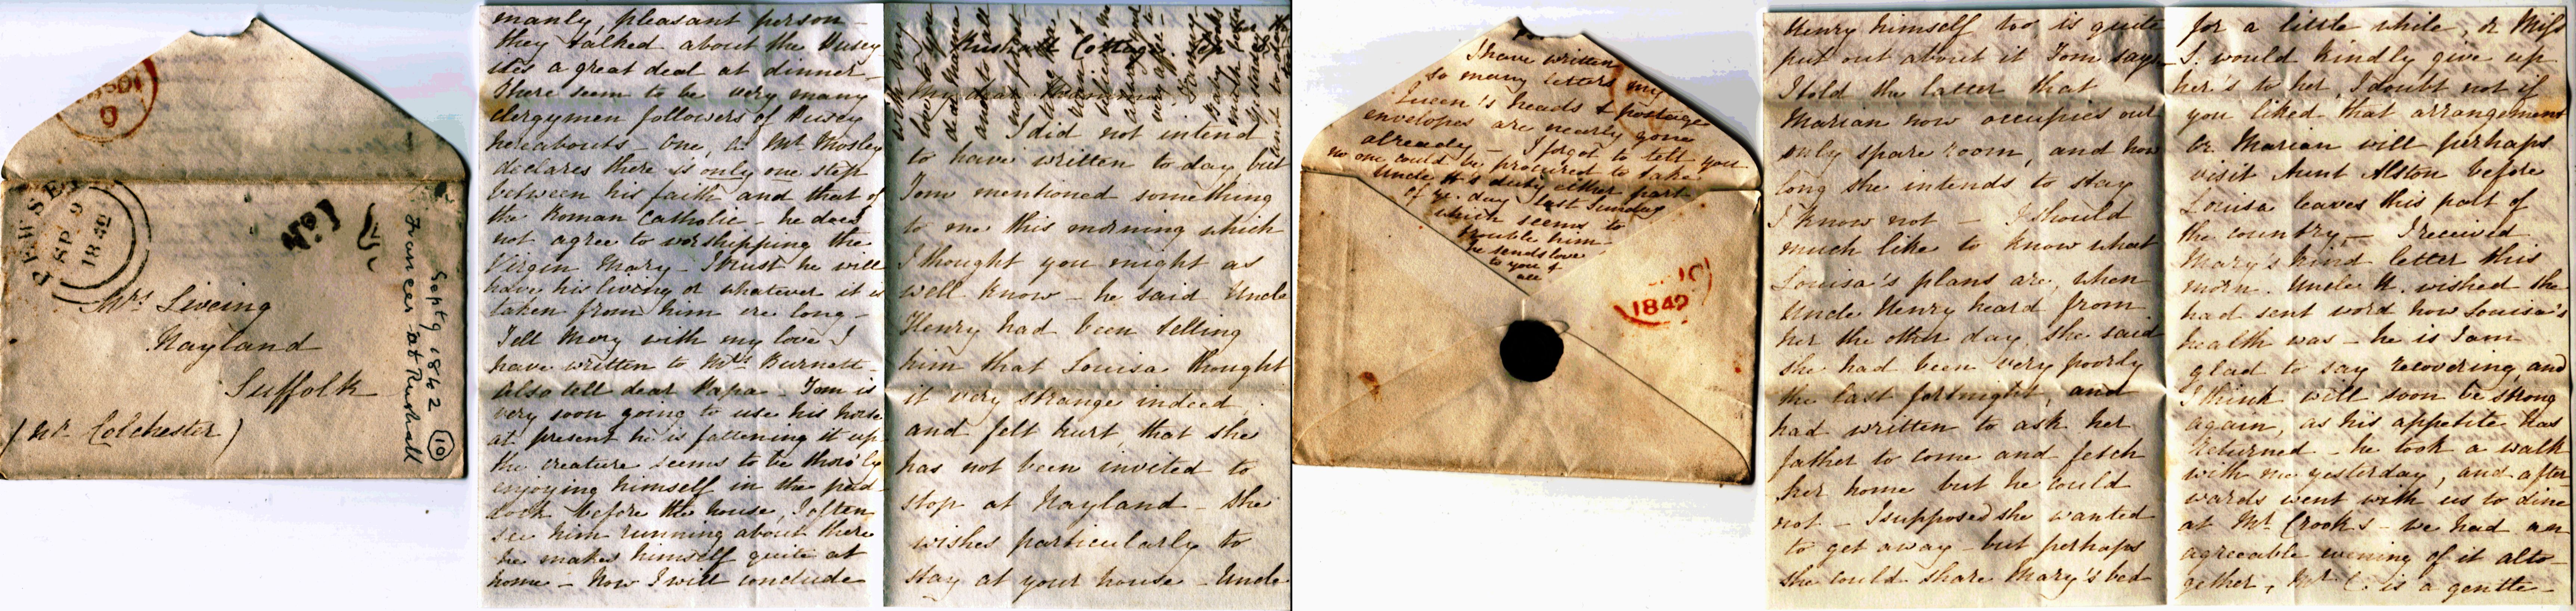 PEWSEY
SP 9
1842
No. 1
Mrs. Liveing
Nayland
Suffolk
(Nr. Colchester)
Septr 9 1842
Frances at Rushall
10
manly, pleasant person -
they talked about the Pusey
ites a great deal at dinner -
There seem to be very many
clergymen followers of Pusey
hereabouts - One, a Mr. Mosley
declares there is only one step
between his faith and that of
the Roman Catholic - he does
not agree to worshipping the
Virgin Mary - I trust he will
have his living or whatever it is
taken from him ere long -
Tell Mary with my love I
have written to Mrs. Burnett -
Also tell dear Papa - Tom is
very soon going to use his horse
at present he is fattening it up -
the creature seems to be thoro'ly
enjoying himself in the pad-
dock before the house, I often
see him running about there
he makes himself quite at
home - Now I will conclude
with my
love to you
dear Mamma
and to all
believe me
always your
very affecte
Fanny
Rushall Cottage
My dear Mamma
I did not intend
to have written to day, but
Tom mentioned something
to me this morning which
I thought you might as
well know - he said Uncle
Henry had been telling
him that Louisa thought
it very strange indeed
and felt hurt, that she
has not been invited to
stop at Nayland - She
wishes particularly to
stay at your house - Uncle
I have written
so many letters my
Queen's heads & postage
envelopes are nearly gone
already - I forgot to tell you
no one could be procured to take
Uncle H's duty either part
of ye. day last Sunday
which seems to
trouble him -
he sends love
to you &
all
1842
Henry himself too is quite
put out about it Tom says -
I told the latter that
Marian now occupies our
only spare room, and how
long she intends to stay
I know not - I should
much like to know what
Louisa's plans are, when
Uncle Henry heard from
her the other day she said
she had been very poorly
the last fortnight, and
had written to ask her
father to come and fetch
her home but he could
not - I supposed she wanted
to get away - but perhaps
she could share Mary's bed
for a little while, or Miss
S. would kindly give up
her's to her, I doubt not if
you liked that arrangement
Or Marian will perhaps
visit Aunt Alston before
Louisa leaves this part of
the country - I received
Mary's kind letter this
morn. Uncle H. wished she
had sent word how Louisa's
health was - he is I am
glad to say recovering, and
I think will soon be strong
again, as his appetite has
returned - he took a walk
with me yesterday, and after
wards went with us to dine
at Mr. Crook's - we had an
agreeable evening of it alto-
gether, Mr. C. is a gentle-